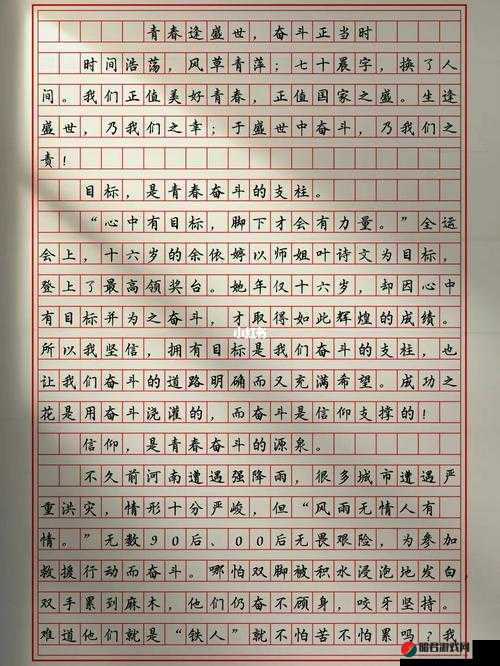 青春逢盛世，奋斗正当时
时间浩荡，风草青萍；七十晨字，换了人
间。我们正值美好青春，正值国家之盛。生逢
盛世，乃我们之幸；于盛世中奋斗，乃我们之
责！
目标，是青春奋斗的支柱。
“心中有目标，脚下才会有力量。”全运
会上，十六岁的余依婷以师姐叶诗文为目标，
登上了最高领奖台。她年仅十六岁，却因心中
有目标并为之奋斗，才取得如此辉煌的成绩。
所以我坚信，拥有目标是我们奋斗的支柱，也
让我们奋斗的道路明确而又充满希望。成功之
花是用奋斗浇灌的，而奋斗是信仰支撑的！
信仰，是青春奋斗的源泉。
不久前河南遭遇强降雨，很多城市遭遇严
重洪灾，情形十分严峻，但“风雨无情人有
情。”无数90后、00后无畏艰险，为参加
救援行动而奋斗。哪怕双脚被积水浸泡地发白
双手累到麻木，他们仍奋不顾身，咬牙坚持。
难道他们就是“铁人”就不怕苦不怕累吗？我
小红书